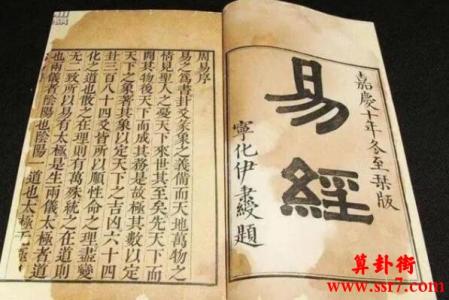 嘉慶十年冬至栞版
易經
寧化伊綬題
周易序
易之爲書卦爻彖象之義備而天地萬物之
情見聖人之憂天下來世其至矣先天下而
開其物後天下而成其務是故極其數以定
天下之象著其象以定天下之吉凶六十四
卦三百八十四爻皆所以順性命之理盡變
化之道也散之在理則有萬殊統之在道則
无二致所以易有太極是生兩儀太極者道
也兩儀者陰陽也陰陽一道也太極无極
算卦街
www.ssr7.com